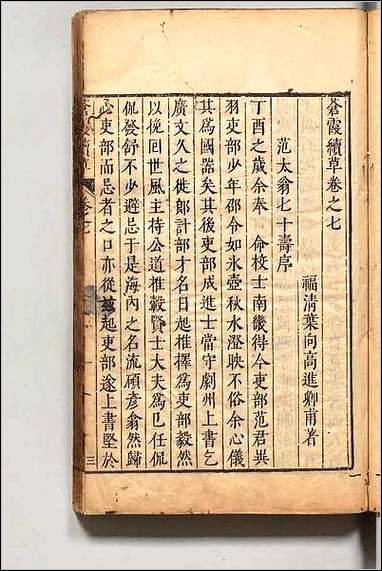 蒼霞續草卷之七
福清葉向高進卿甫著
范太翁七十壽序
丁酉之歲余奉 命校士南畿得今吏部范君異
羽吏部少年邵令如氷壺秋水澄映不俗余心儀
其為國器矣其後吏部成進士當守劇州上書乞
廣文久之徙郎計部才名日起推擇為吏部毅然
以挽回世風主持公道推轂賢士大夫為巳任侃
侃發舒不少避忌于是海內之名流碩彥翕然歸
心吏部而忌者之口亦從玆起吏部遂上書堅於
蒼霞續草
卷七
三